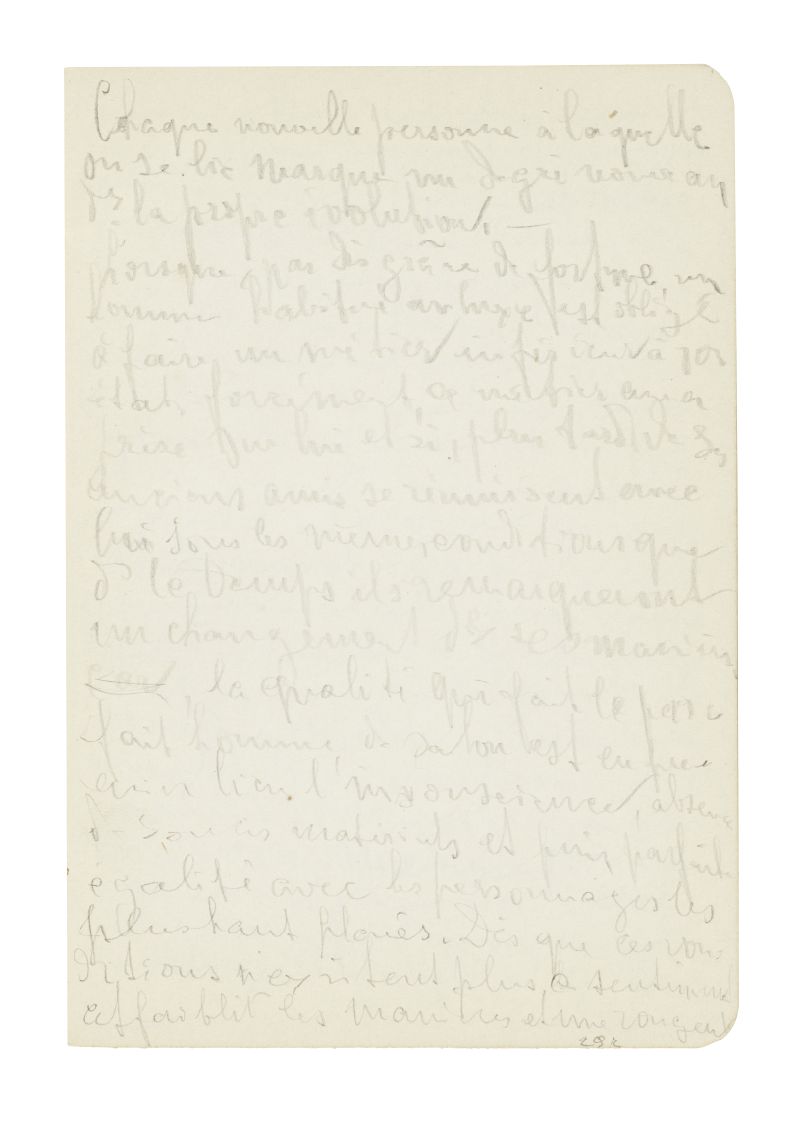 Chaque nouvelle personne à laquelle
on se lie marque un degré nouveau
ds la propre évolution. —
Lorsque, par disgrâce de fortune, un
homme habitué au luxe est obligé
à faire un métier inférieur à son
état, forcément ce métier aura
prise sur lui et si, plus tard de ses
anciens amis se réunissent avec
lui sous les même conditions que
ds le temps ils remarqueront
un changement ds ses manières
car, la qualité qui fait le par
fait homme de salon est en pre
mier lieu l'insouscience, absence
de soucis matériels et puis parfaite
égalité avec les personnages les
plus haut placés. Dès que ces con
ditions n'existent plus, le sentiment
affaiblit les manières
292